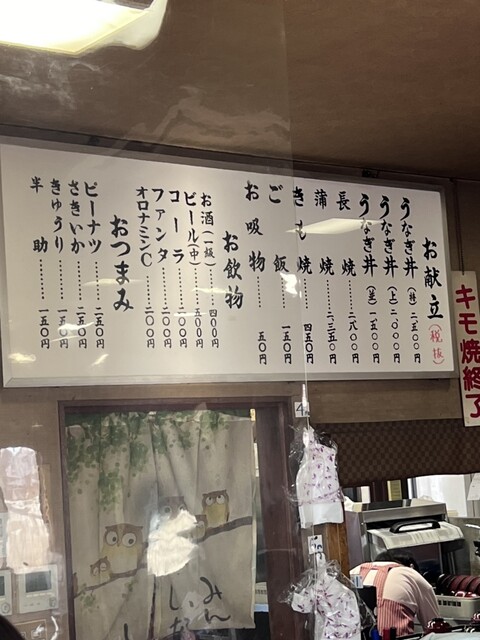 お献立(税抜)
うなぎ丼(特)…二、五〇〇円
うなぎ丼(上)…二、〇〇〇円
うなぎ丼(並)…一、五〇〇円
長焼………二、八〇〇円
蒲焼………二、三五〇円
きも焼………四五〇円
ご飯………一五〇円
お吸物………五〇円
お飲物
お酒(一級)……四〇〇円
ビール(中)……五〇〇円
コーラ………二〇〇円
ファンタ………二〇〇円
オロナミンC……二〇〇円
おつまみ
ピーナツ………二五〇円
さきいか………二五〇円
きゅうり………一五〇円
半助………一五〇円
キモ焼終了